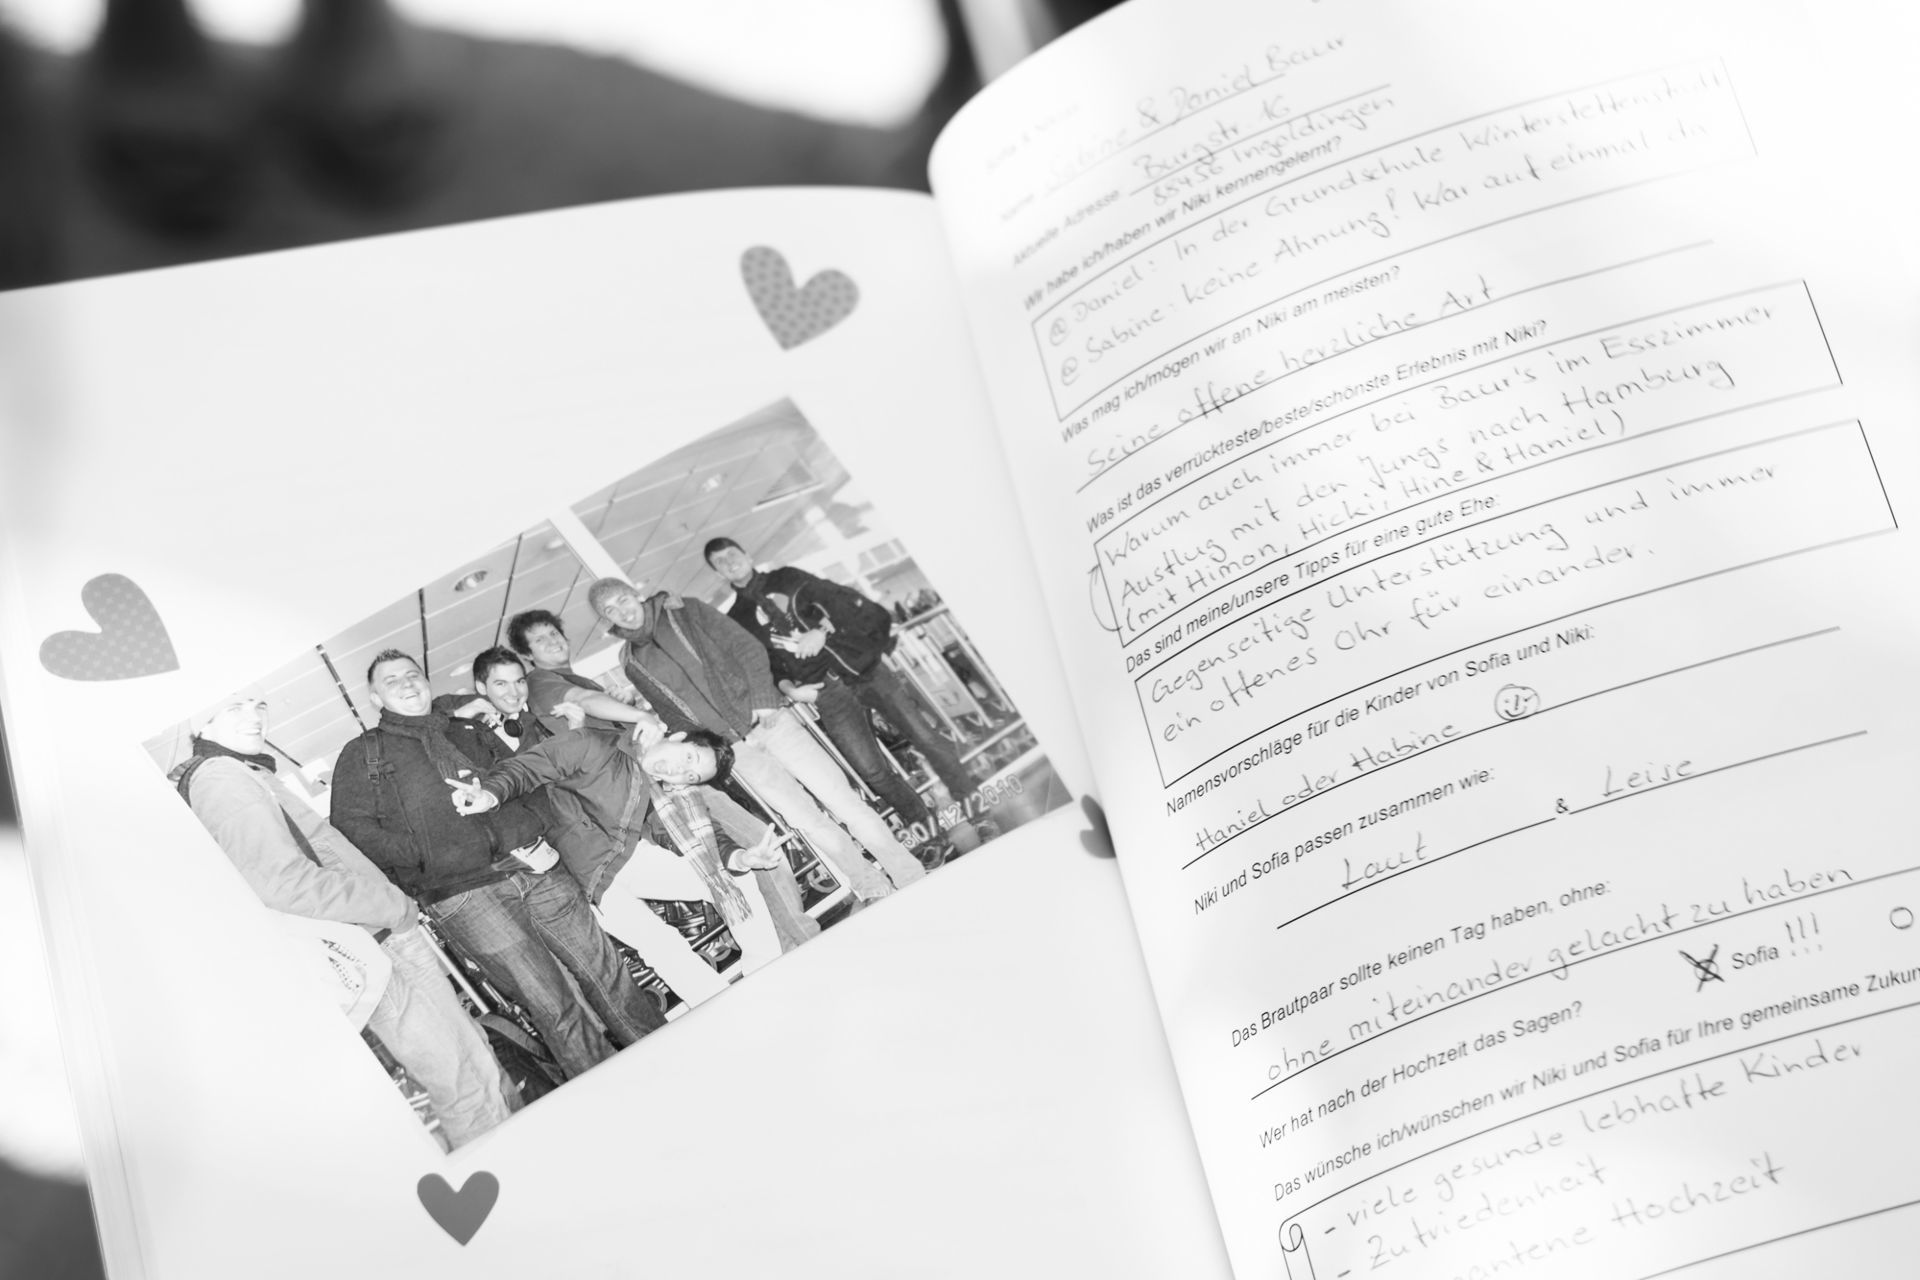 30/12/2010
Sofia & Niki
Name: Sabine & Daniel Baur
Aktuelle Adresse: Burgstr. 16
88456 Ingoldingen
Wir habe ich/haben wir Niki kennengelernt?
@ Daniel: In der Grundschule Winterstettenstadt
@ Sabine: Keine Ahnung! War auf einmal da
Was mag ich/mögen wir an Niki am meisten?
Seine offene herzliche Art
Was ist das verrückteste/beste/schönste Erlebnis mit Niki?
Warum auch immer bei Baur's im Esszimmer
Ausflug mit den Jungs nach Hamburg
(mit Himon, Hicki, Hine & Haniel)
Das sind meine/unsere Tipps für eine gute Ehe:
Gegenseitige Unterstützung und immer
ein offenes Ohr für einander.
Namensvorschläge für die Kinder von Sofia und Niki:
Haniel oder Habine
Niki und Sofia passen zusammen wie:
Laut & Leise
Das Brautpaar sollte keinen Tag haben, ohne:
ohne miteinander gelacht zu haben
Wer hat nach der Hochzeit das Sagen? Sofia !!!
Das wünsche ich/wünschen wir Niki und Sofia für Ihre gemeinsame Zukun
- viele gesunde lebhafte Kinder
- Zufriedenheit
Hochzeit